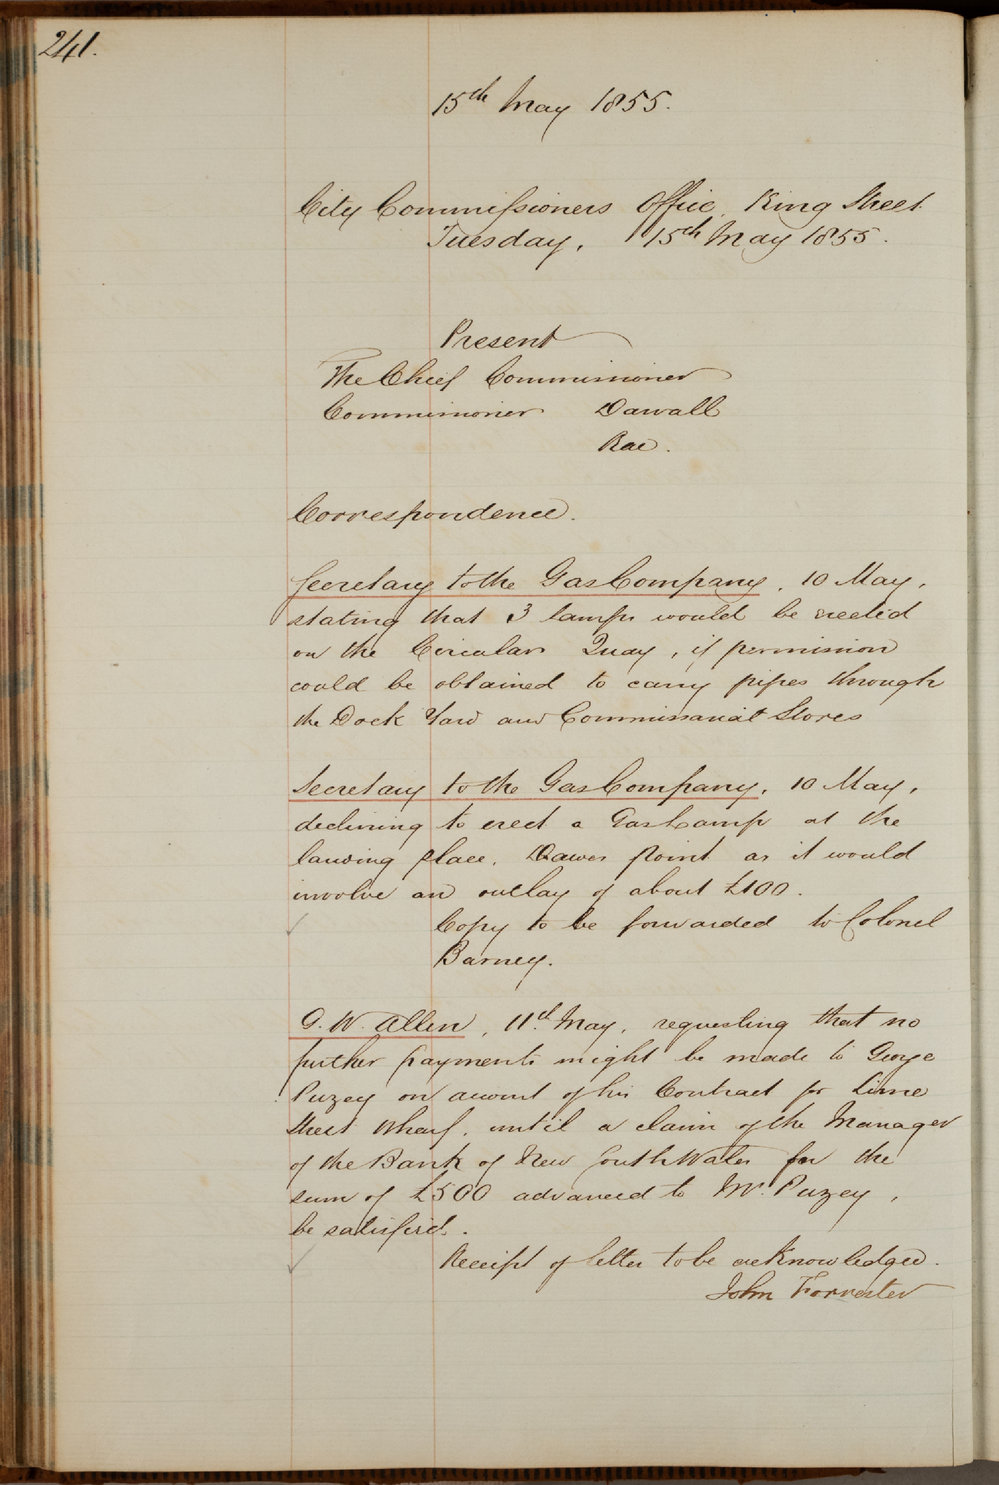 241.
15th May 1855.
City Commissioners Office, King Street
Tuesday, 15th May 1855.
Present
The Chief Commissioner
Commissioner Darvall
Rae.
Correspondence.
Secretary to the Gas Company, 10 May,
stating that 3 lamps would be erected
on the Circular Quay, if permission
could be obtained to carry pipes through
the Dock Yard and Commissariat Stores
Secretary to the Gas Company, 10 May,
declining to erect a Gas Lamp at the
landing place, Dawes point as it would
involve an outlay of about £100.
Copy to be forwarded to Colonel
Barney.
G. W. Allen, 11th May, requesting that no
further payments might be made to George
Puzey on account of his Contract for Lime
Street Wharf, until a claim of the Manager
of the Bank of New South Wales for the
sum of £500 advanced to Mr. Puzey,
be satisfied.
Receipt of letter to be acknowledged.
John Forrester